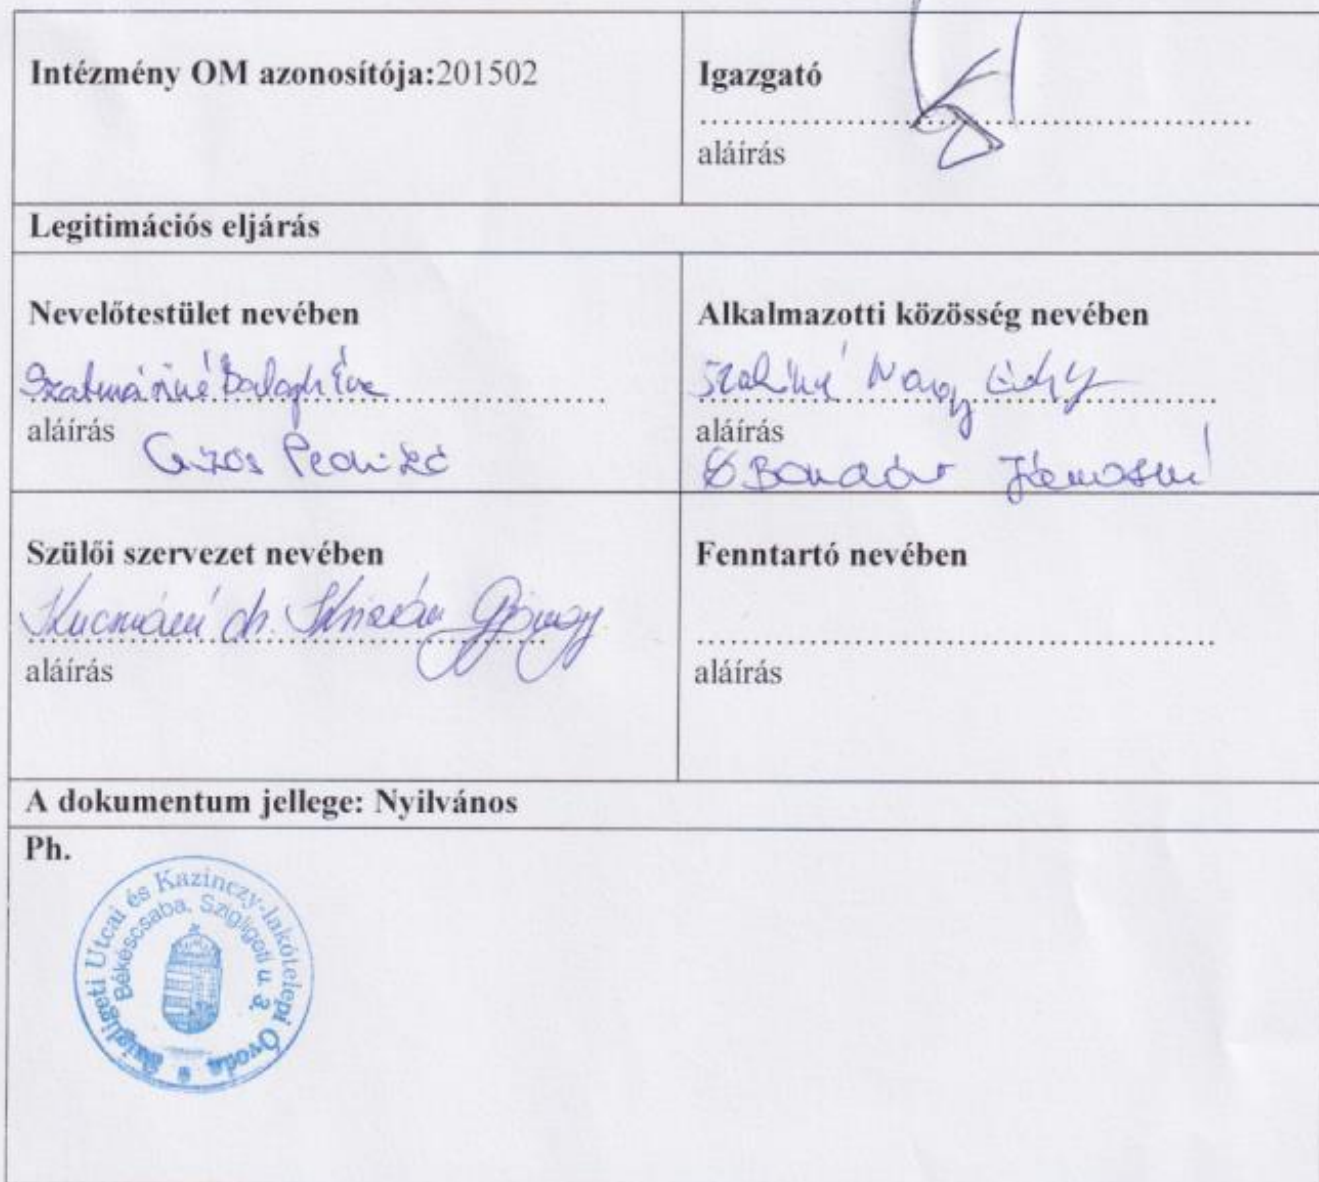 Intézmény OM azonosítója:201502
Igazgató
aláírás
Legitimációs eljárás
Nevelőtestület nevében
Szatmáriné Balogh Éva
aláírás
Alkalmazotti közösség nevében
Nagy
aláírás
Jánosné
Szülői szervezet nevében
dr. György
aláírás
Fenntartó nevében
aláírás
A dokumentum jellege: Nyilvános
Ph.
Szigligeti Utcai és Kazinczy-lakótelepi Óvoda
Békéscsaba, Szigligeti u.